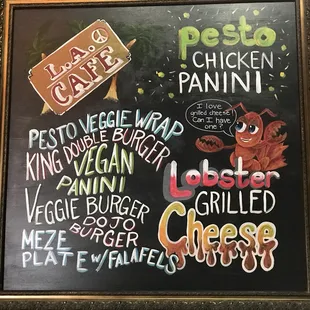 L.A.
CAFE
PESTO VEGGIE WRAP
KING DOUBLE BURGER
VEGAN
PANINI
VEGGIE BURGER
DOJO
BURGER
MEZE
PLATE W/ FALAFELS
pesto
CHICKEN
PANINI
I love
grilled cheese!
Can I have
one?
Lobster
GRILLED
Cheese